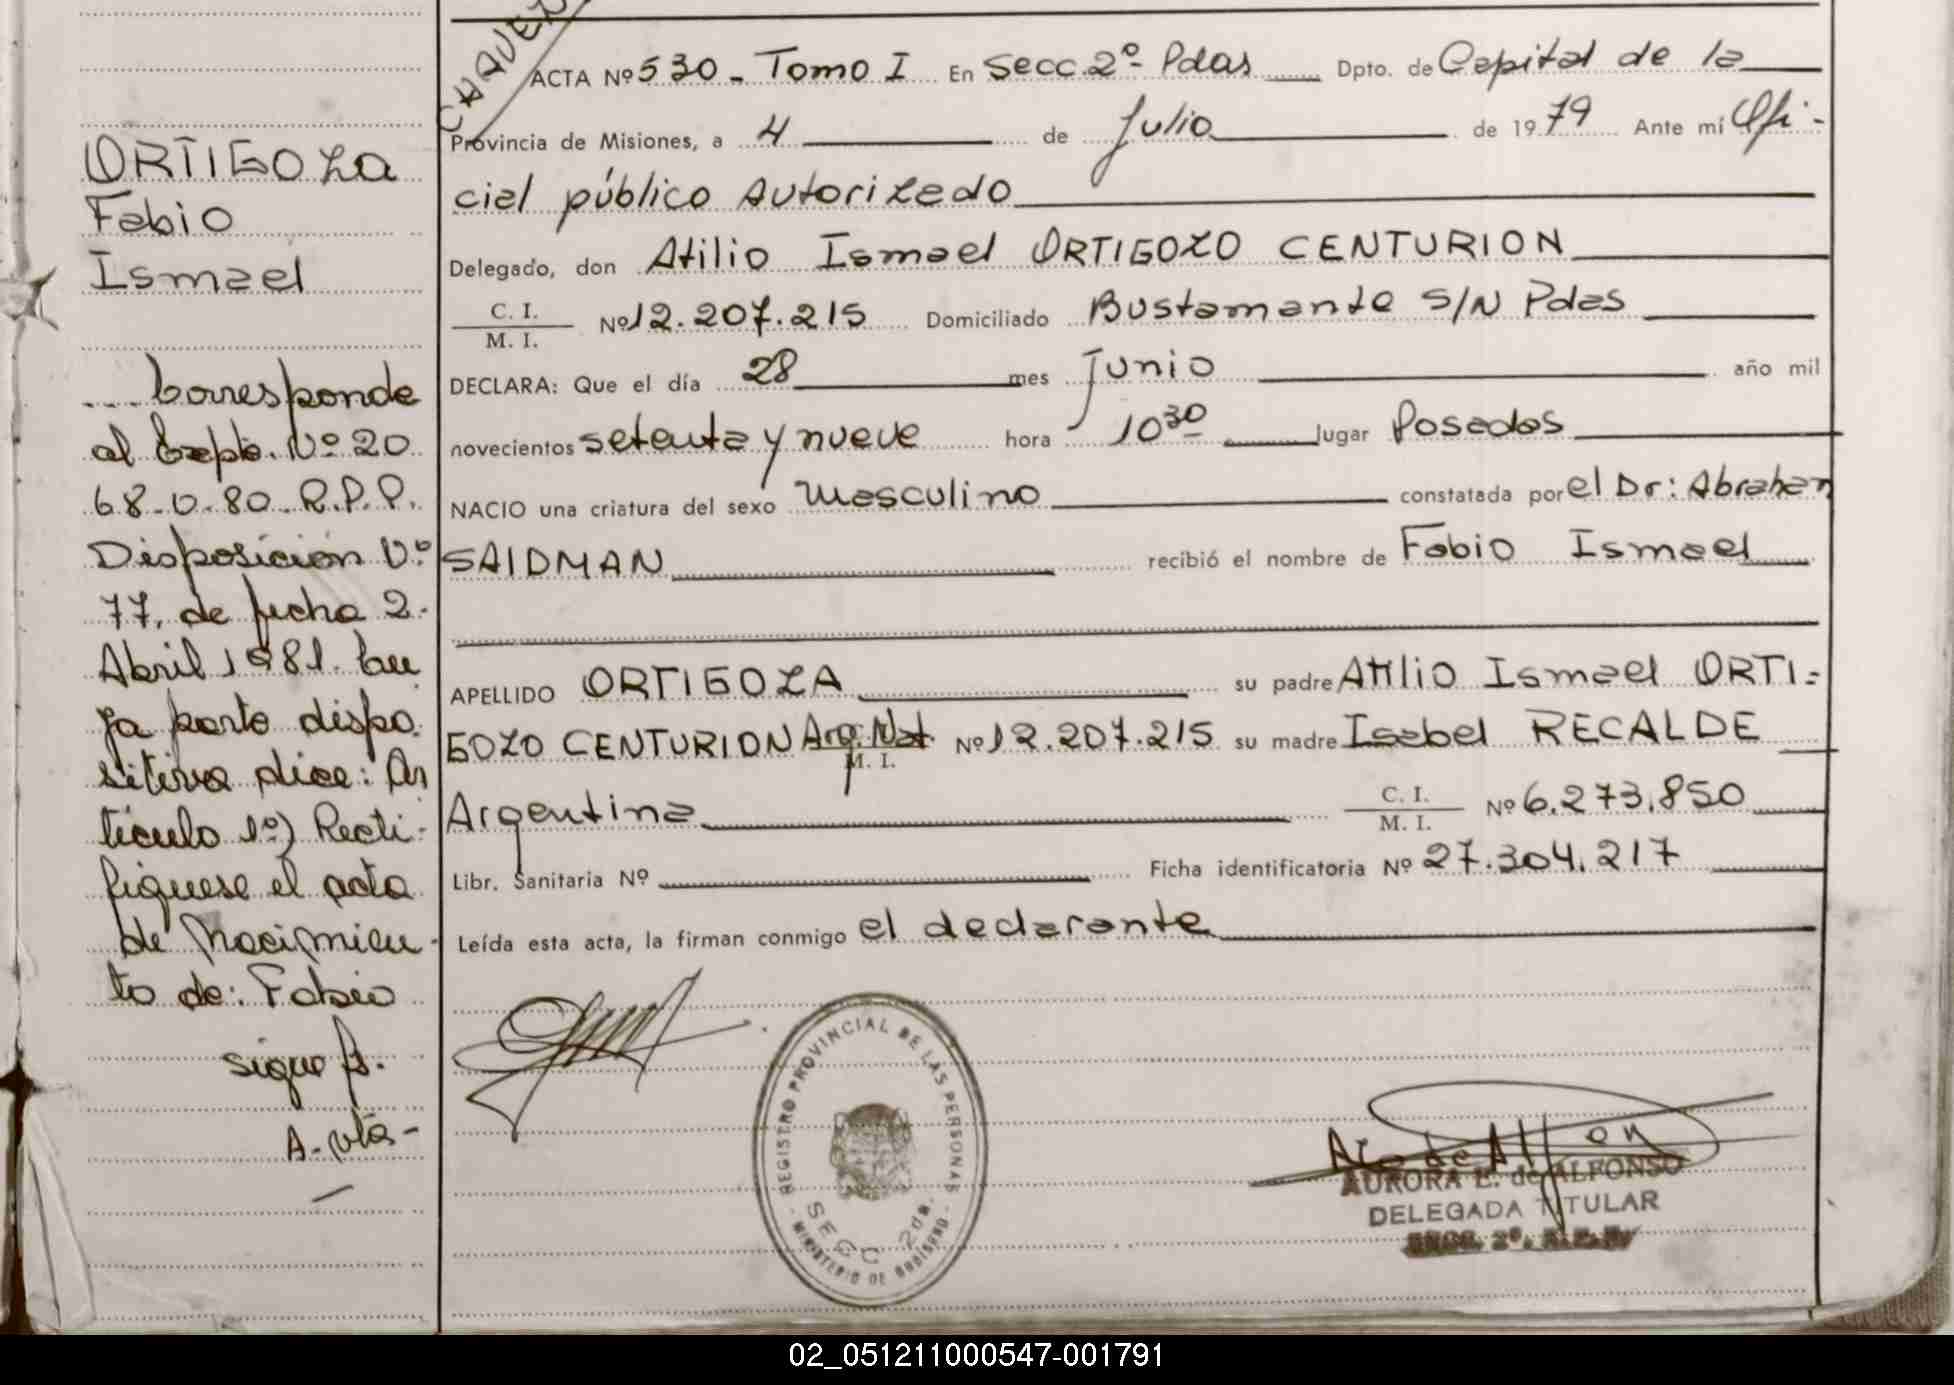 ORTIGOZA
Fabio
Ismael
Corresponde
al Expte. Nº 20
68-0-80-R.P.P.
Disposición Nº
77, de fecha 2-
Abril 1981. Cu
ya parte dispo-
sitiva dice: Ar
tículo 1º) Recti-
fíquese el acta
de Nacimien-
to de: Fabio
sigue fs.
A. vta-
ACTA Nº 530 - Tomo I En Secc. 2º- Pdas Dpto. de Capital de la
Provincia de Misiones, a 4 de Julio de 1979 Ante mí Ofi-
cial público Autorizado
Delegado, don Atilio Ismael ORTIGOZO CENTURION
C. I.
M. I. Nº 12.207.215 Domiciliado Bustamante S/N Pdas
DECLARA: Que el día 28 mes Junio año mil
novecientos setenta y nueve hora 10 30 lugar Posadas
NACIO una criatura del sexo Masculino constatada por el Dr: Abrahan
SAIDMAN recibió el nombre de Fabio Ismael
APELLIDO ORTIGOZA su padre Atilio Ismael ORTI-
GOZO CENTURION Arg. Nat. M. I. Nº 12.207.215 su madre Isabel RECALDE
Argentina C. I.
M. I. Nº 6.273.850
Libr. Sanitaria Nº Ficha identificatoria Nº 27.304.217
Leída esta acta, la firman conmigo el declarante
REGISTRO PROVINCIAL DE LAS PERSONAS
SECC 2da.
- MINISTERIO DE GOBIERNO -
AURORA E. de ALFONSO
DELEGADA TITULAR
SECC. 2º.
02_051211000547-001791